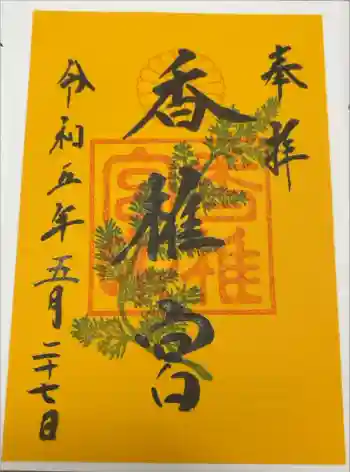 奉拝
香椎宮
令和五年五月二十七日
香椎宮